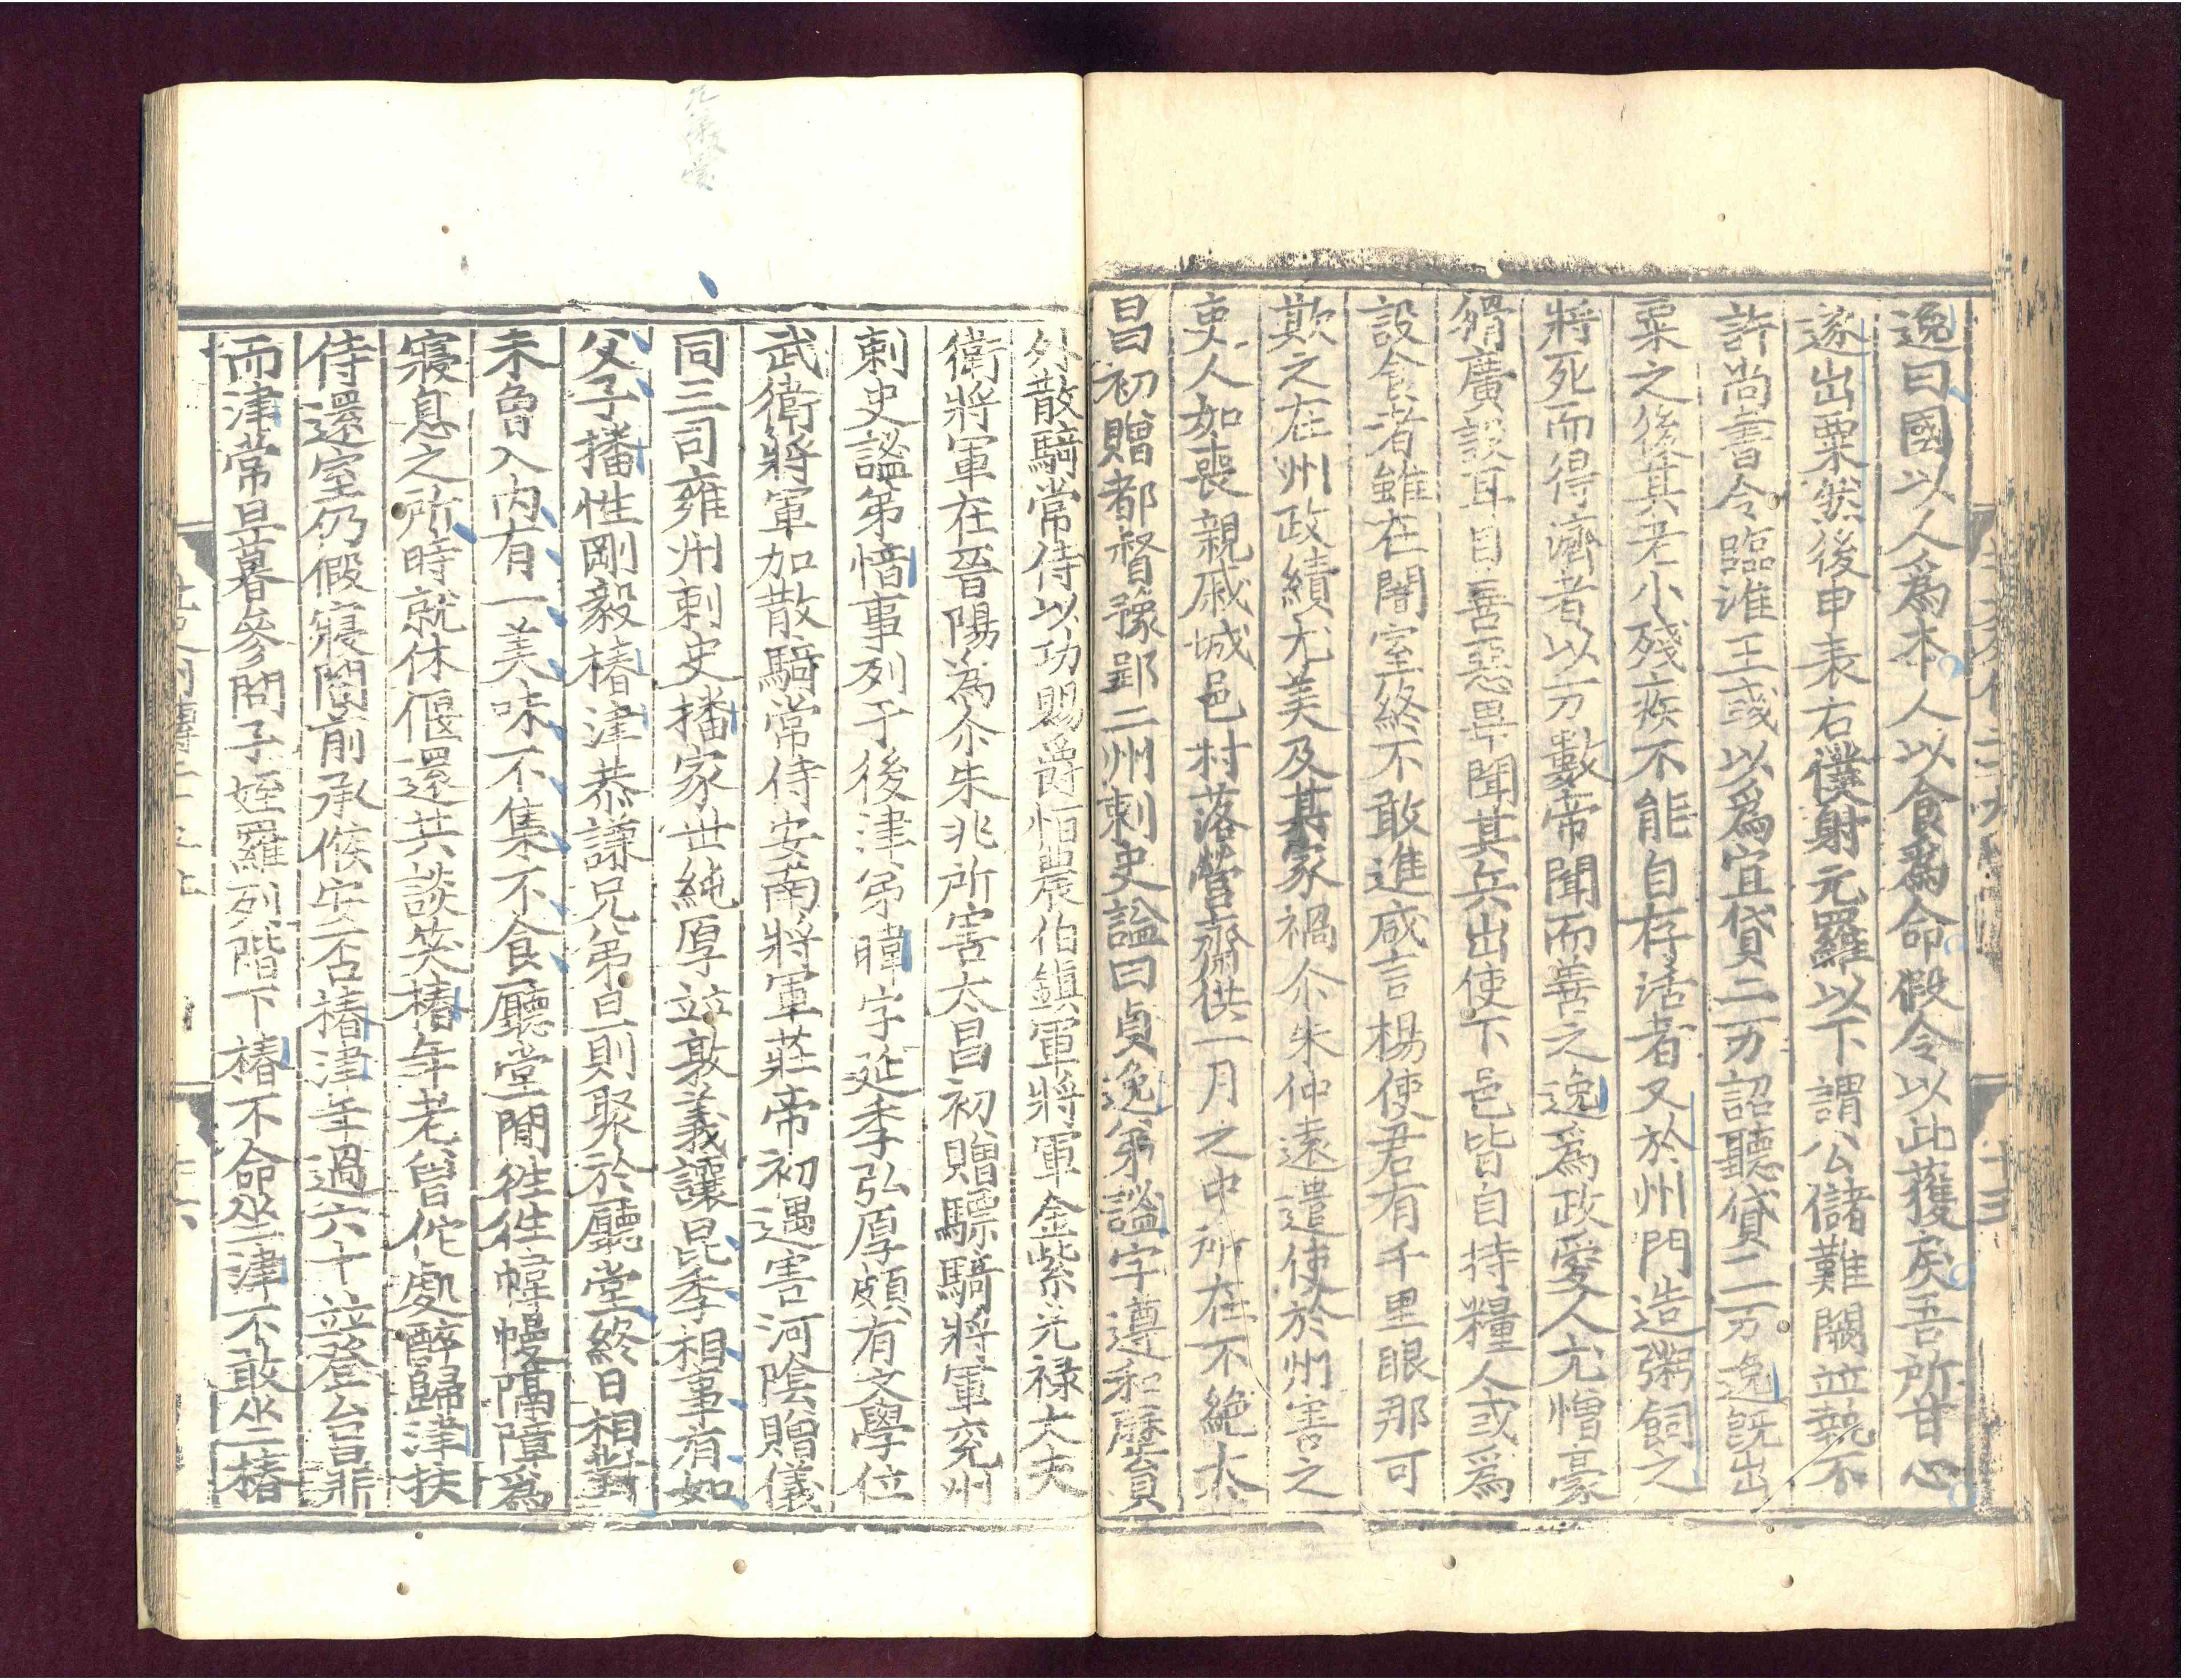 逸曰國以人爲本人以食爲命假令以此獲戾吾所甘心
遂出粟然後申表右僕射元羅以下謂公儲難闕並執不
許尚書令臨淮王彧以爲宜貸二万詔聽貸二万逸旣出
粟之後其老小殘疾不能自存活者又於州門造粥飼之
將死而得濟者以万數帝聞而善之逸爲政愛人尤憎豪
猾廣設耳目善惡畢聞其兵出使下邑皆自持糧人或爲
設食者雖在闇室終不敢進咸言楊使君有千里眼那可
欺之在州政績尤美及其家禍尒朱仲遠遣使於州害之
吏人如喪親戚城邑村落營齋供一月之中所在不絶太
昌初贈都督豫郢二州刺史謚曰貞逸弟謐字遵和歷貟
外散騎常侍以功賜爵恒農伯鎮軍將軍金紫光禄大夫
衛將軍在晉陽爲尒朱兆所害太昌初贈驃騎將軍兖州
刺史謐弟愔事列于後津弟暐字延季弘厚頗有文學位
武衛將軍加散騎常侍安南將軍莊帝初遇害河陰贈儀
同三司雍州刺史播家世純厚並敦義讓昆季相事有如
父子播性剛毅椿津恭謙兄弟旦則聚於廳堂終日相對
未曾入内有一美味不集不食廳堂閒徃徃幃幔隔障爲
寢息之所時就休偃還共談笑椿年老曾佗處醉歸津扶
侍還室仍假寢閤前承候安否椿津年過六十並登台鼎
而津常旦暮參問子姪羅列階下椿不命坐津不敢坐椿